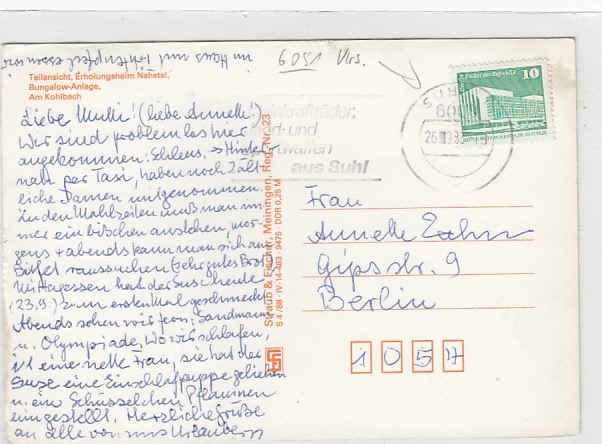 im Haus und
6051 Vlrs.
Teilansicht, Erholungsheim Nahetal,
Bungalow-Anlage,
Am Kohlbach
Liebe Mutti! (liebe Annelie!)
Wir sind problemlos hier
angekommen: Schleus. → Hinter-
nah per Taxi, haben noch 2 ält-
liche Damen mitgenommen.
Zu den Mahlzeiten muß man im-
mer ein bißchen anstehen, mor-
gens + abends kann man sich am
Büfett raussuchen (sehr gutes Brot).
Mittagessen hat der Suse heute
(23.9.) zum ersten Mal geschmeckt.
Abends sehen wir fern: Sandmann
u. Olympiade. Wo wir schlafen,
ist eine nette Frau, sie hat der
Suse eine Einschlafpuppe geliehen
u. ein Schüsselchen Pflaumen
eingestellt. Herzliche Grüße
an alle von uns Urlaubern
Straub & Fischer, Meiningen, Reg.-Nr. 23
S 4/88 IV-14-483 9475 DDR 0,25 M
Kleinkrafträder,
Jagd- und
Sportwaffen
aus Suhl
SUHL
600
Palast der Republik
10
Frau
Annelie Zahn
Gipsstr. 9
Berlin
1057